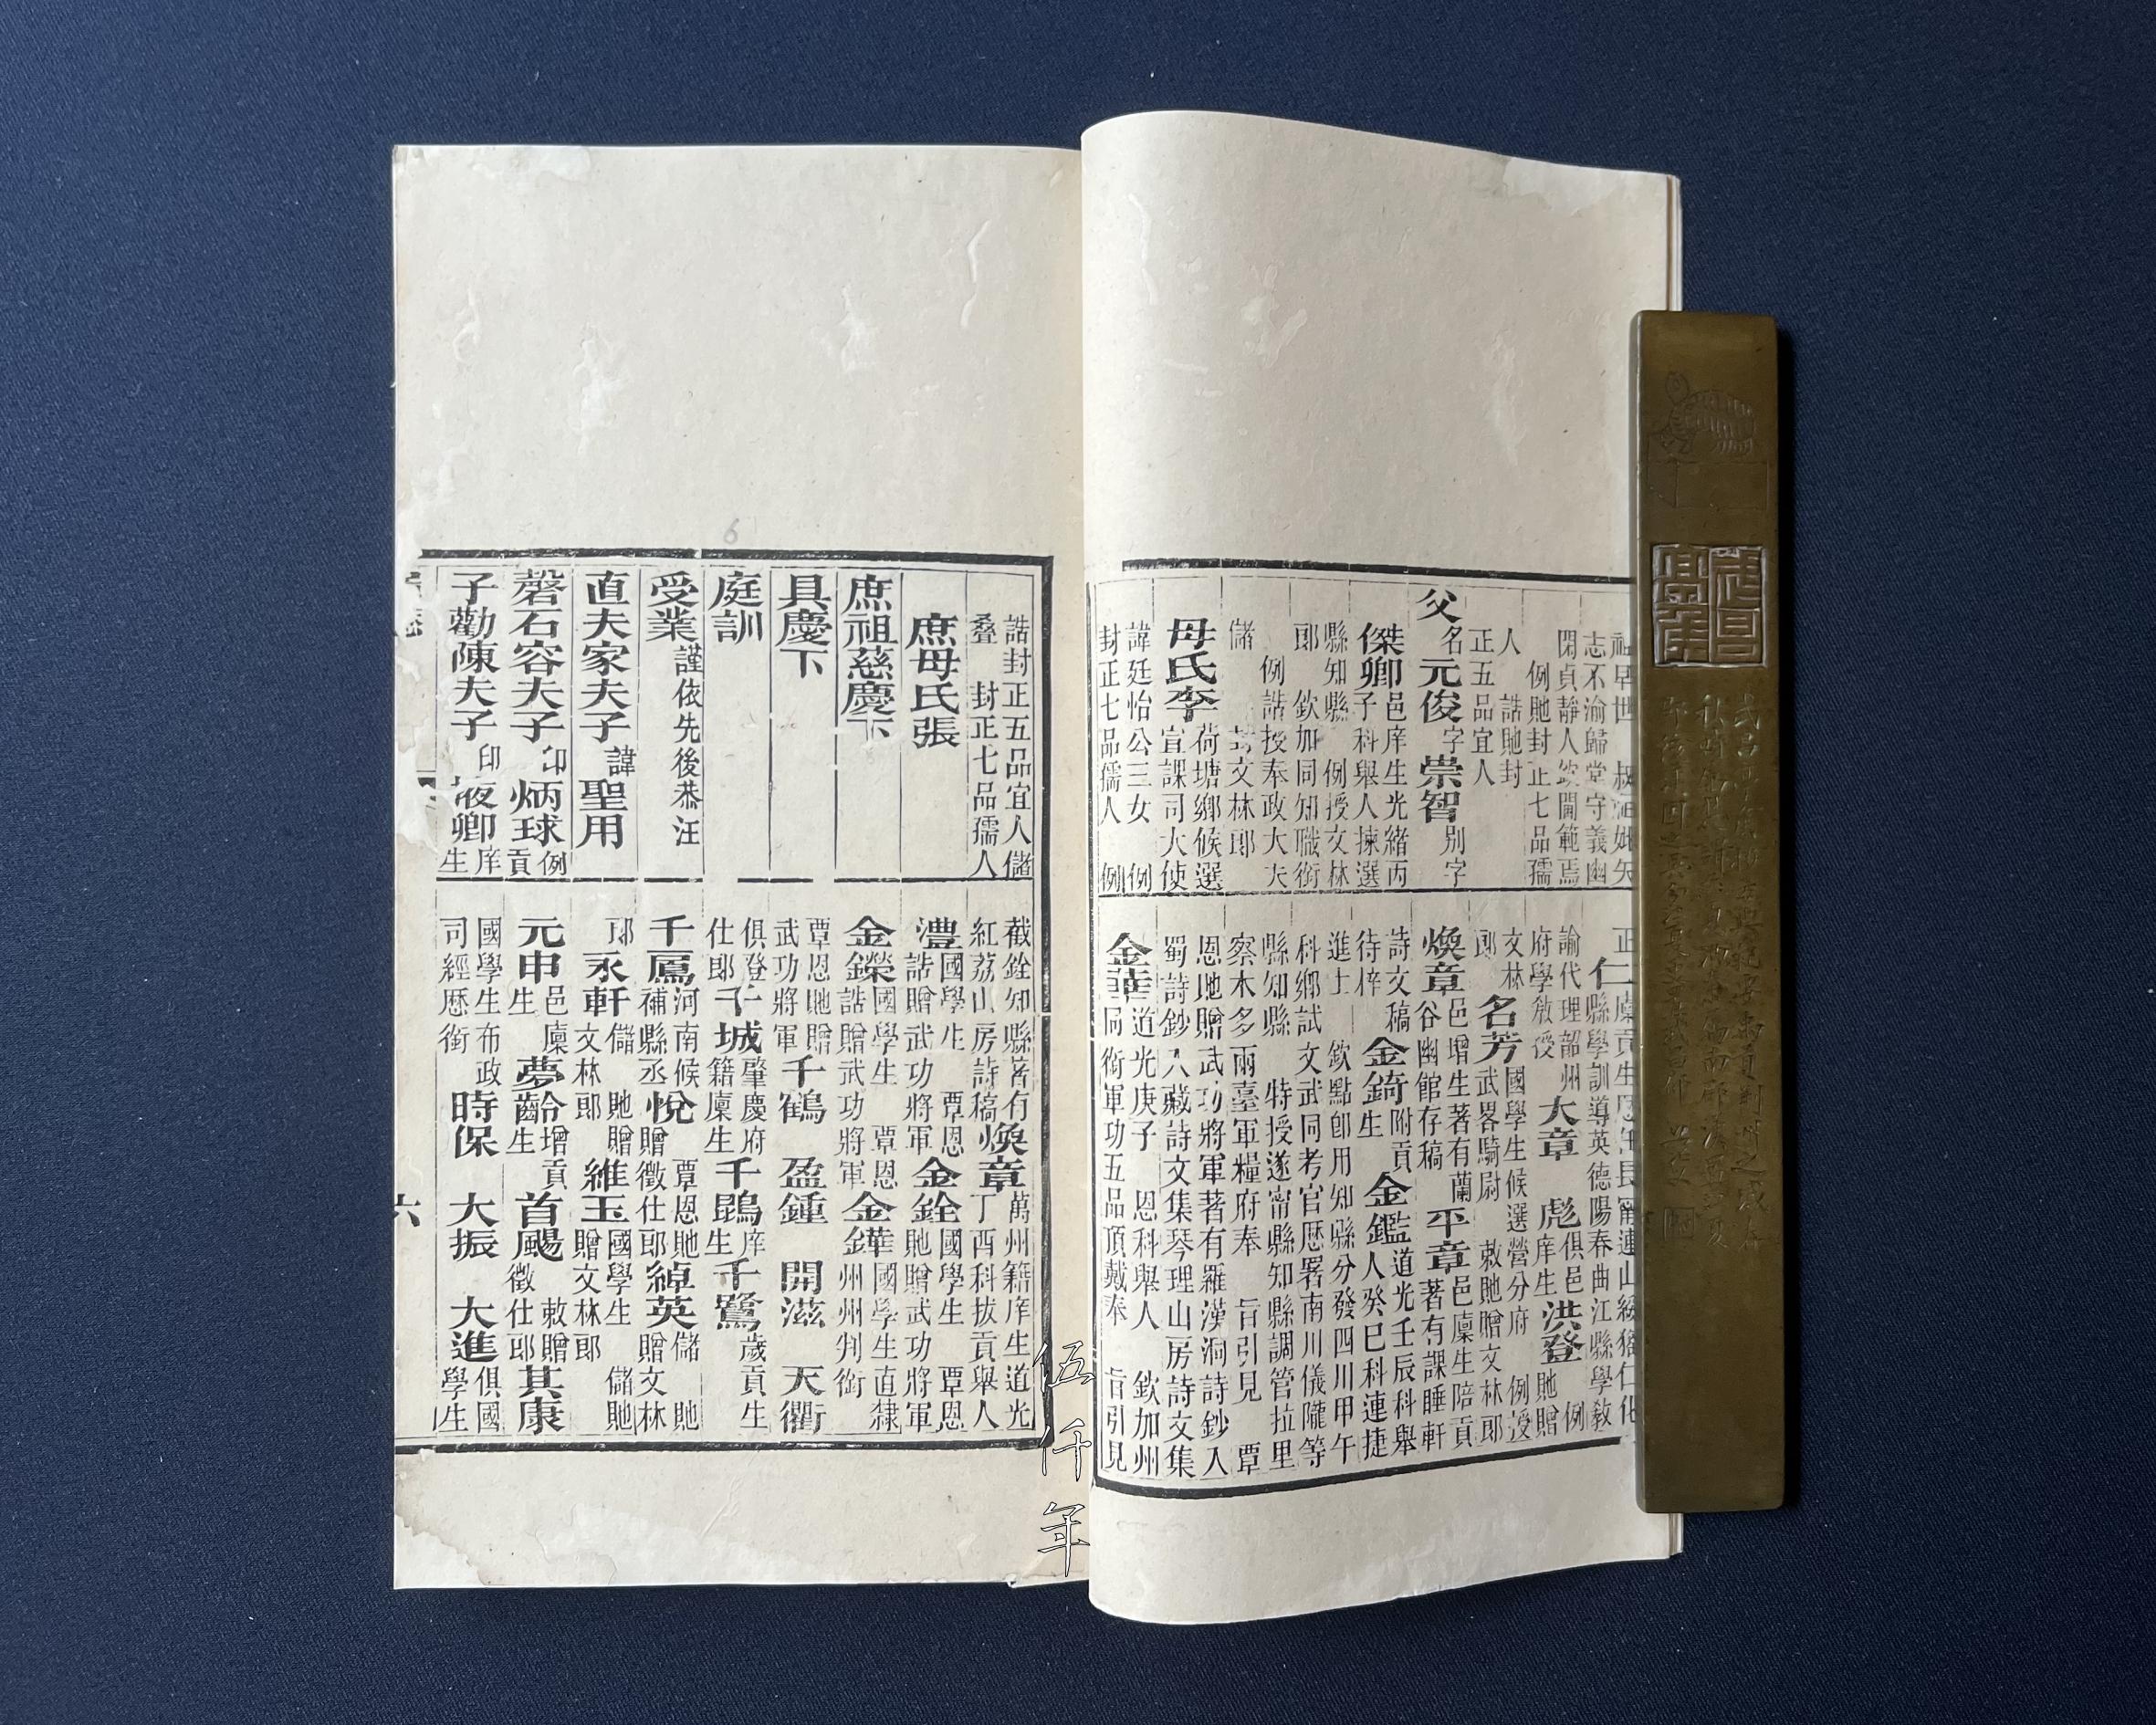 志不渝歸堂守義幽
閑貞靜人欽閫範焉
例貤封正七品孺
人　誥貤封
正五品宜人
父名元俊字崇智別字
傑卿邑庠生光緒丙
子科舉人揀選
縣知縣　例授文林
郎　欽加同知職銜
例誥授奉政大夫
儲　文林郎
母氏李荷塘鄉候選
宣課司大使
諱廷怡公三女　例
封正七品孺人　例
縣學訓導英德陽春曲江縣學教
諭代理韶州大章　彪俱邑庠生洪登例貤贈
府學教授
文林郎名芳國學生候選營分府　例授武畧騎尉　敕貤贈文林郎
煥章邑增生著有蘭谷幽館存稿平章邑廩生陪貢著有課睡軒
詩文稿待梓金錡附貢生金鑑道光壬辰科舉人癸巳科連捷
進士　欽點卽用知縣分發四川甲午
科鄉試文武同考官歷署南川儀隴等
縣知縣　特授遂甯縣知縣調管拉里
察木多兩臺軍糧府奉　旨引見　覃
恩貤贈武功將軍著有羅漢洞詩鈔入
蜀詩鈔入藏詩文集琴理山房詩文集
金華道光庚子　恩科舉人　欽加州同銜軍功五品頂戴奉　旨引見
誥封正五品宜人儲
叠　封正七品孺人
庶母氏張
庶祖慈慶下
具慶下
庭訓
受業謹依先後恭注
直夫家夫子諱聖用
磬石容夫子印炳球例貢
子勸陳夫子印液卿庠生
截銓知縣皆有煥章萬州籍庠生道光
紅荔山房詩稿丁酉科拔貢舉人
灃國學生　覃恩誥贈武功將軍金銓國學生　覃恩貤贈武功將軍
金鑅國學生　覃恩誥贈武功將軍金鏵國學生直隸州州判銜
覃恩貤贈武功將軍千鶴　盈鍾　開滋　天衢
俱登仕郎千城肇慶府籍廩生千鵾庠生千鷺歲貢生
千鳫河南候補縣丞悅　覃恩貤贈徵仕郎綽英儲　貤贈文林
郎永軒儲　貤贈文林郎維玉國學生　儲貤贈文林郎
元申邑廩生夢齡增貢生首颺敕贈徵仕郎其康
國學生布政司經歷銜時保　大振　大進俱國學生
六
6
伍仟年